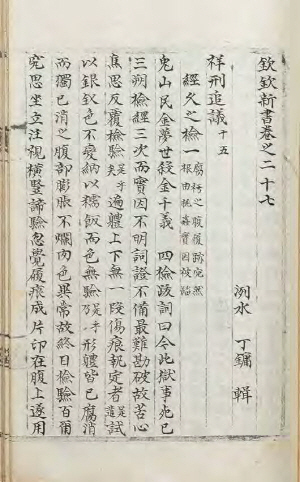 欽欽新書卷之二十七
洌水 丁鏞 輯
祥刑追議十五
經久之檢一 腐朽之腹履跡宛然 根由執嘉實因歧
兎山民金夢世殺金千義 四檢跋詞曰今此獄事死已
三朔檢經三次而實因不明詞證不備最難勘破故苦心
焦思反覆檢驗是乎矣遍軆上下無一段傷痕執定者是乎遣試
以銀釵色不變納以糯飯而色無驗是乎乃形軆皆已腐消
而獨已消之腹部膨脹不爛肉色異常故終日檢驗百爾
究思坐立注視橫竪諦驗忽覺履痕成片印在腹上遂用